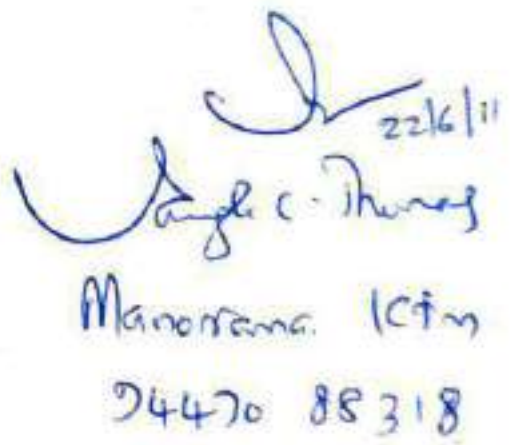 22/6/11
C. Thomas
Manorama. Ktm
94470 88318